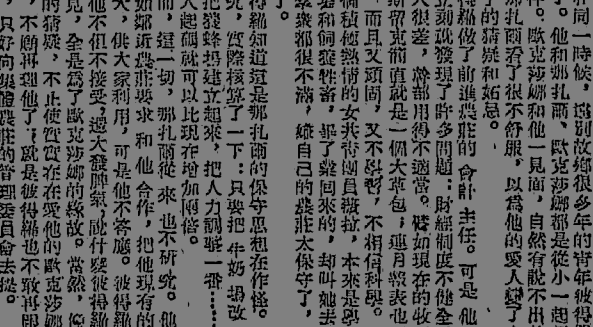 和同一時候，這別故鄉很多年的青年彼得羅
。他和那扎爾、歐克莎娜都是從小一起
件。歐克莎娜和他一見面，自然有說不出
那扎爾看了很不舒服，以爲他的愛人變了
的猜疑和妬忌。
得羅做了前進農莊的會計主任。可是他
立刻就發現了許多問題：財經制度不健全
人很差，幹部用得不適當。譬如現在的收
斯留克簡直就是一個大草包，連月報表也
而且又頑固，又不學習，不相信科學。
個積極熱情的女共青團員薇拉，本來是學
和飼養牲畜，畢了業回來的，却叫她去
羣衆都很不滿，嫌自己的農莊太保守了，
了。
得羅知道這是那扎爾的保守思想在作怪。
究，實際核算了一下：只要把牛奶場改
把發蜂場建立起來，把人力調整一番……
人起碼就可以比現在增加兩倍。
而，這一切，那扎爾從來也不研究。他
如鄰近農莊要求和他合作，把他現有的
大，供大家利用，可是他不答應。彼得羅
他不但不接受，還大發脾氣，說什麼彼得羅
見，全是爲了歐克莎娜的緣故。當然，
的猜疑，不止使實實在在愛他的歐克莎娜
，不願再理他了；就是彼得羅也不敢再跟
，只好向集體農莊的管理委員會去提。